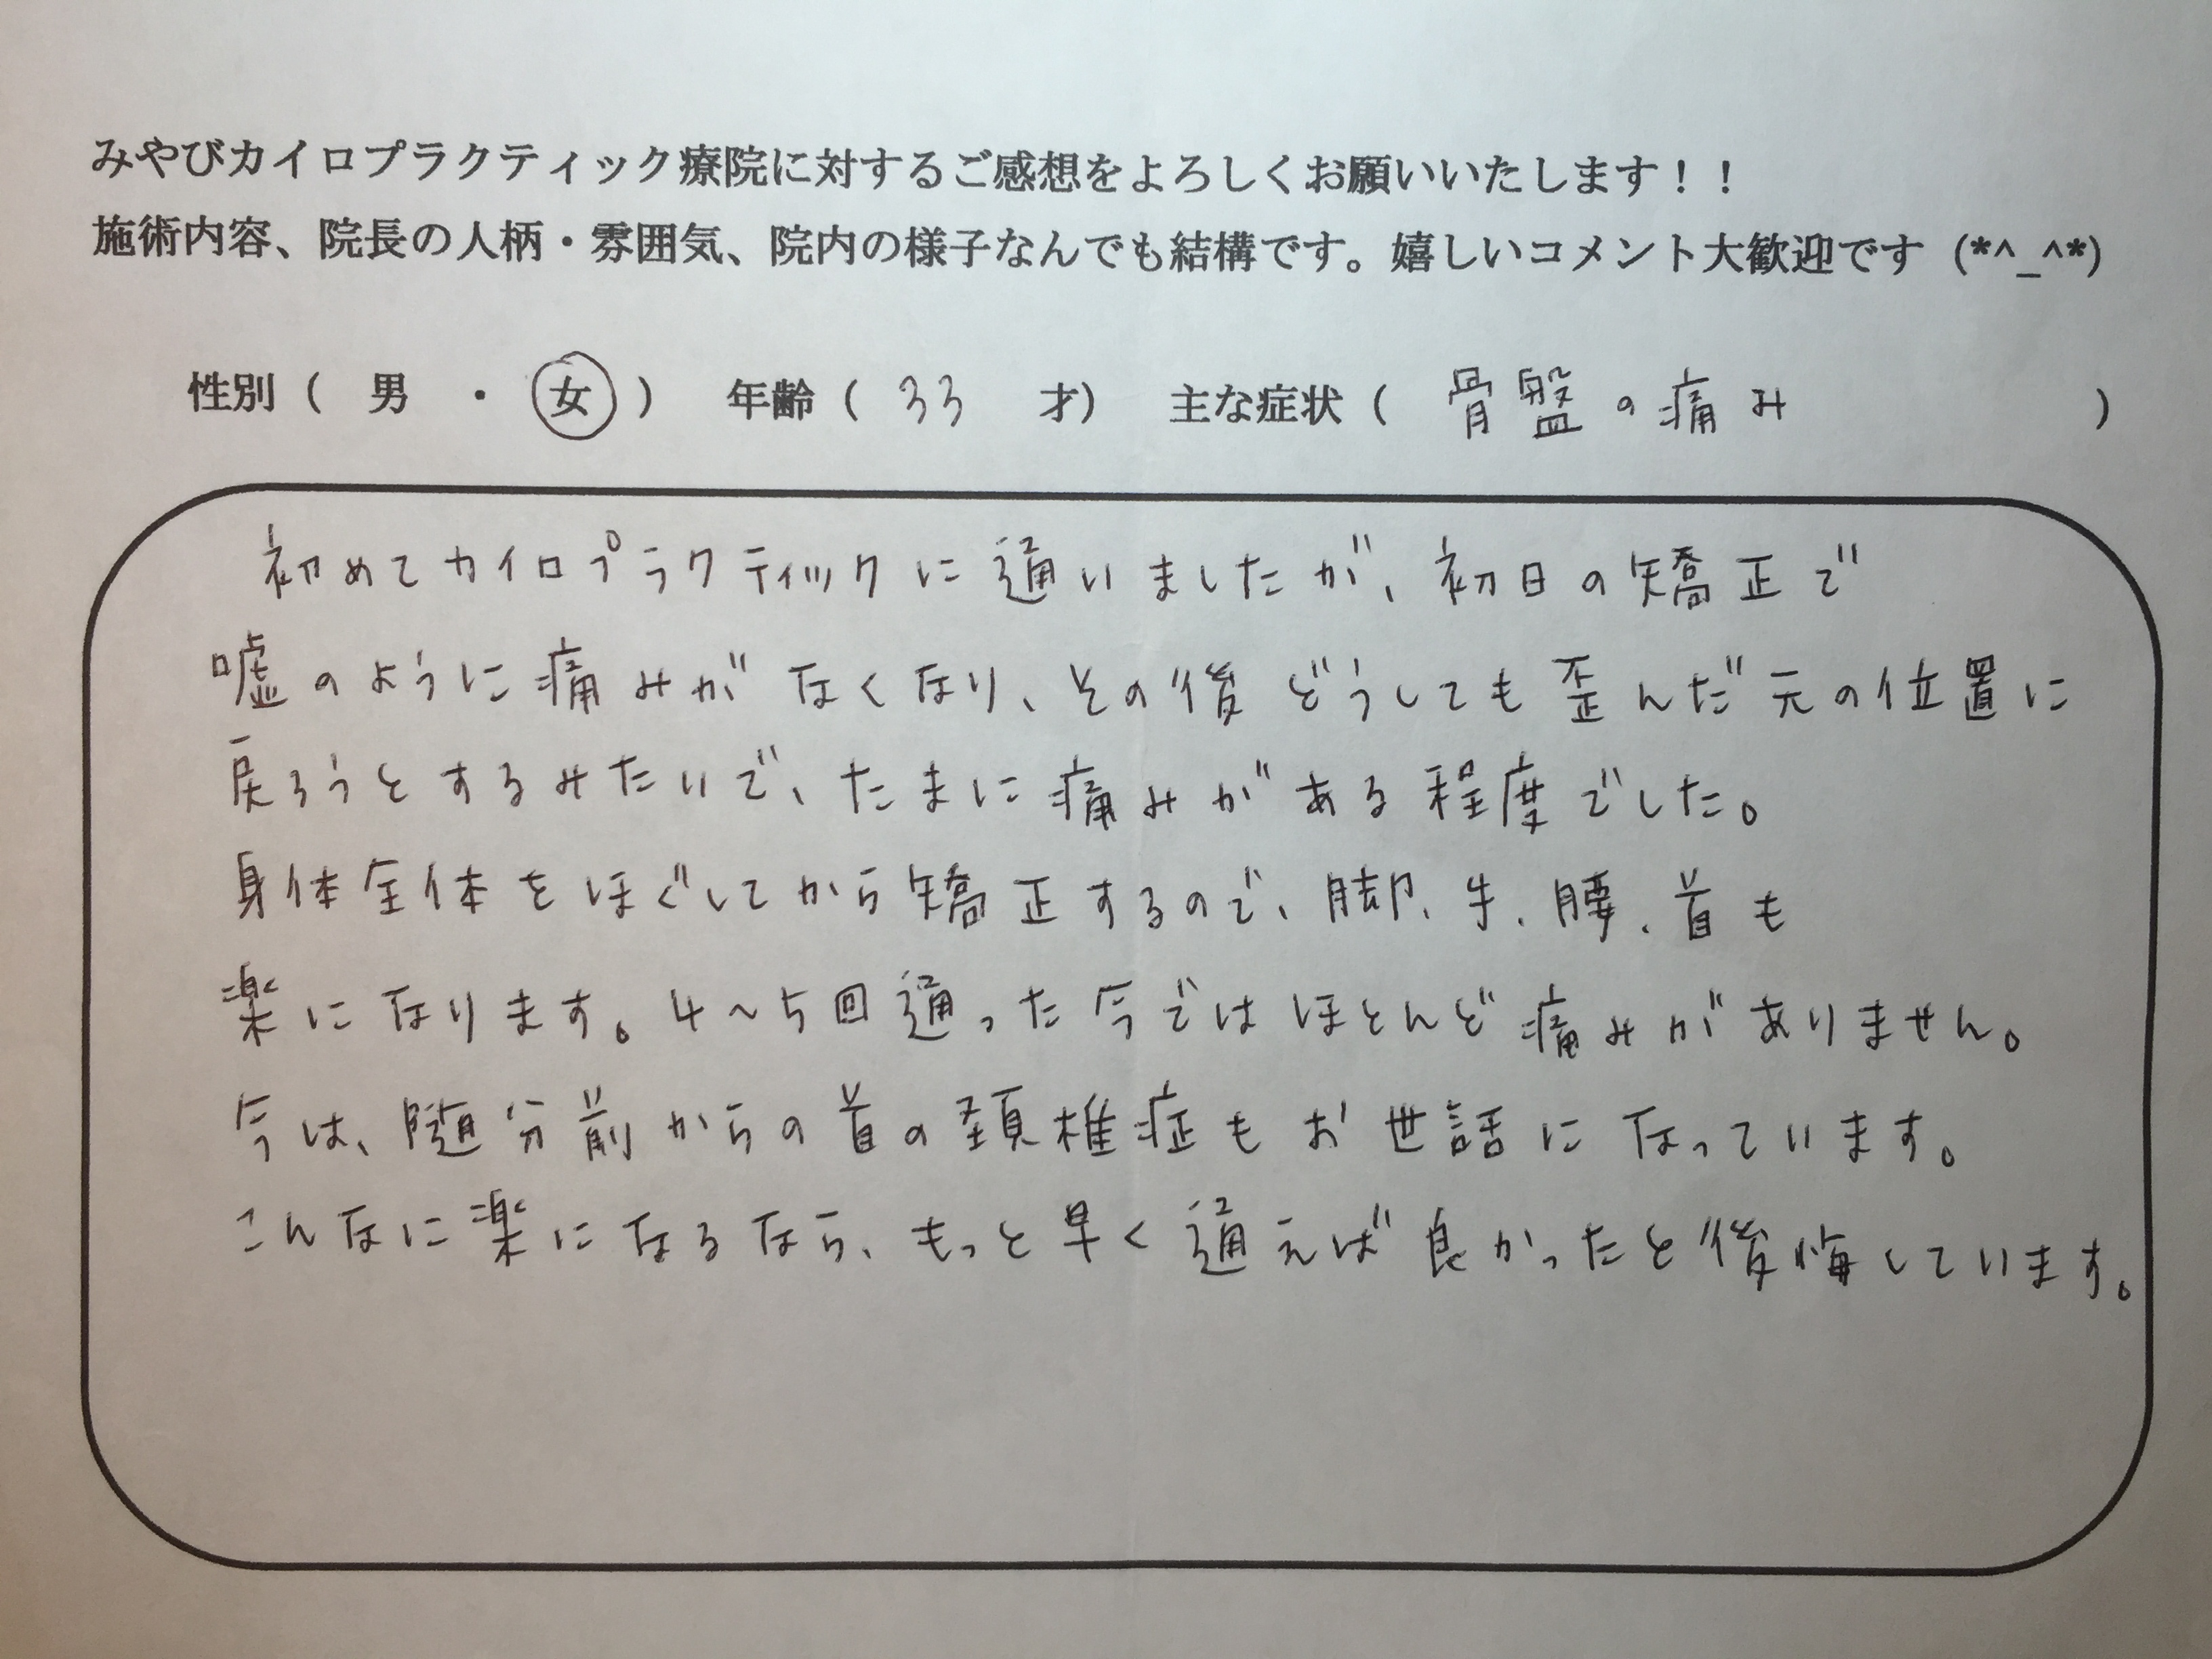 みやびカイロプラクティック療院に対するご感想をよろしくお願いいたします！！
施術内容、院長の人柄・雰囲気、院内の様子なんでも結構です。嬉しいコメント大歓迎です (*^_^*)
性別（ 男 ・ 女 ） 年齢（ 33 才） 主な症状（ 骨盤の痛み ）
初めてカイロプラクティックに通いましたが、初日の矯正で
嘘のように痛みがなくなり、その後どうしても歪んだ元の位置に
戻ろうとするみたいで、たまに痛みがある程度でした。
身体全体をほぐしてから矯正するので、脚、手、腰、首も
楽になります。4〜5回通った今ではほとんど痛みがありません。
今は、随分前からの首の頚椎症もお世話になっています。
こんなに楽になるなら、もっと早く通えば良かったと後悔しています。